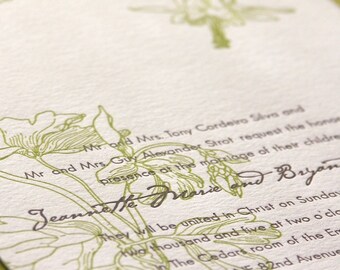 Mr and Mrs. Tony Cordeiro Silva and
Mr and Mrs. Guy Alexander Strot request the honor
presence at the marriage of their children
Jeannette Marie and Bryan
They will be united in Christ on Sunday
two thousand and five at two o'clock
in The Cedars room of the Em
E 52nd Avenue